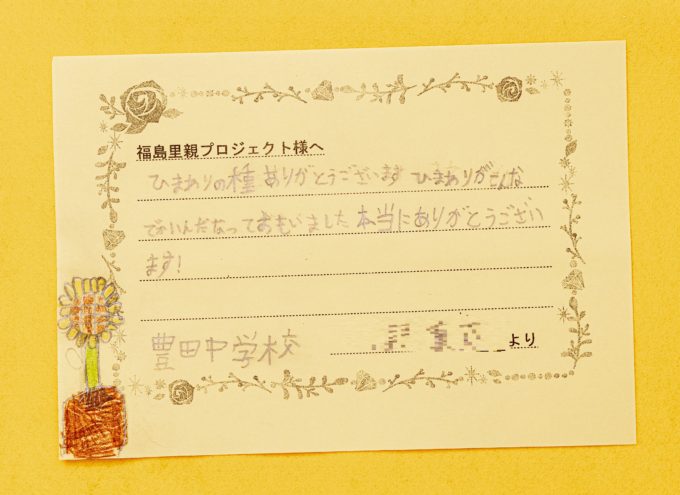 福島里親プロジェクト様へ
ひまわりの種ありがとうございます ひまわりがこんな
でかいんだなっておもいました 本当にありがとうござい
ます!
豊田中学校
より